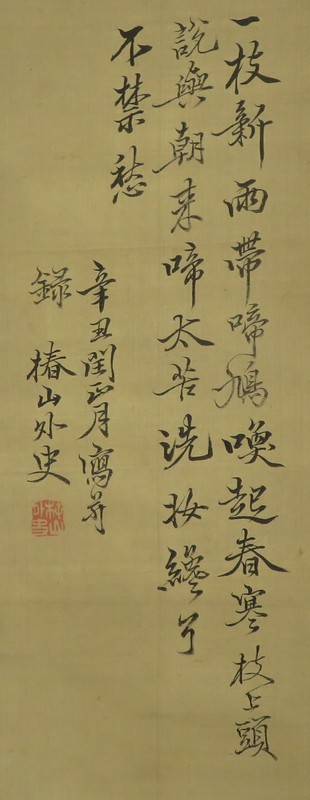 一枝新雨帶啼鳩喚起春寒枝上頭
説與朝来啼太苦洗妝纔了
不禁愁
辛丑閏正月寫并
錄 椿山外史